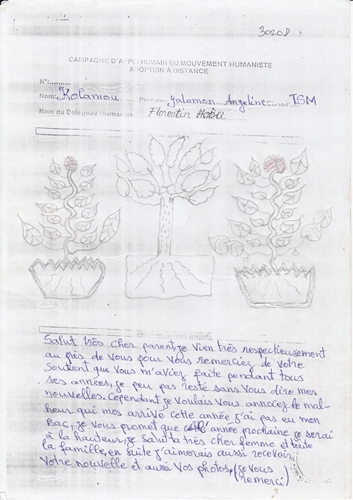 30208
CAMPAGNE D'APPUI HUMAIN DU MOUVEMENT HUMANISTE
ADOPTION A DISTANCE
N°:
Nom: Kolamou Yalamon Angeline TSM
Nom du Délégué Humaniste Florentin Haba
Salut très cher parent je vien très respectieusement
au près de vous pour vous remerciez de votre
soutient que vous m'aviez faite pendant tous
ses années, je peu pas resté sans vous dire mes
nouvelles. Cependant je voulais vous annocez le mal-
heur qui mes arrivé cette année j'ai pas eu mon
Bac, je vous promet que année prochaine je serai
à la hauteur, je saluta très cher femme et toute
la famille, en suite j'aimerais aussi recevoir
votre nouvelle et aussi vos photos, (je vous
remerci)